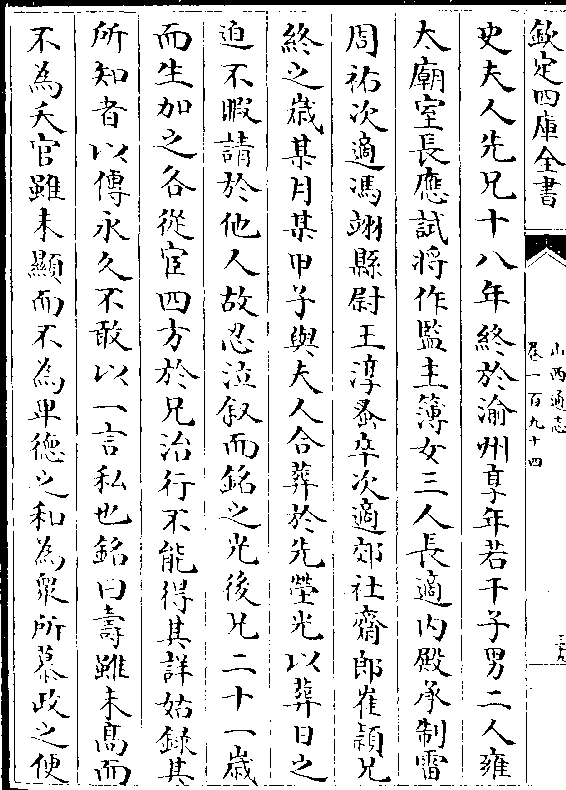 欽定四庫全書
山西通志
卷一百九十四
三十九
史夫人先兄十八年終於渝州享年若干子男二人雍
太廟室長應試將作監主簿女三人長適内殿承制雷
周祐次適馮翊縣尉王淳蚤卒次適郊社齋郎崔頴兄
終之歳某月某甲子與夫人合葬於先塋光以葬日之
迫不暇請於他人故忍泣叙而銘之光後兄二十一歳
而生加之各從宦四方於兄治行不能得其詳姑録其
所知者以傳永久不敢以一言私也銘曰壽雖未髙而
不為夭官雖未顯而不為卑德之和為衆所慕政之便